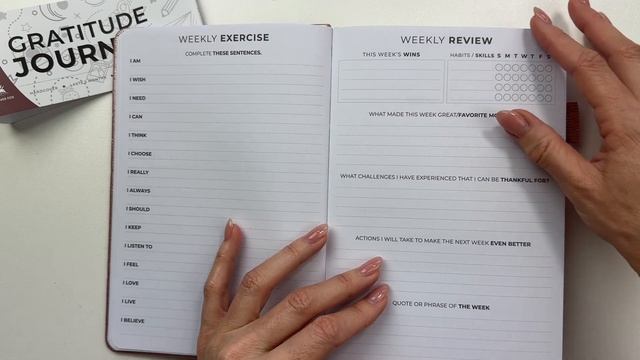 GRATITUDE
JOURN
WEEKLY EXERCISE
COMPLETE THESE SENTENCES.
I AM
I WISH
I NEED
I CAN
I THINK
I CHOOSE
I REALLY
I ALWAYS
I SHOULD
I KEEP
I LISTEN TO
I FEEL
I LOVE
I LIVE
I BELIEVE
WEEKLY REVIEW
THIS WEEK'S WINS
HABITS / SKILLS S M T W T F S
WHAT MADE THIS WEEK GREAT/FAVORITE MO
WHAT CHALLENGES I HAVE EXPERIENCED THAT I CAN BE THANKFUL FOR?
ACTIONS I WILL TAKE TO MAKE THE NEXT WEEK EVEN BETTER
QUOTE OR PHRASE OF THE WEEK